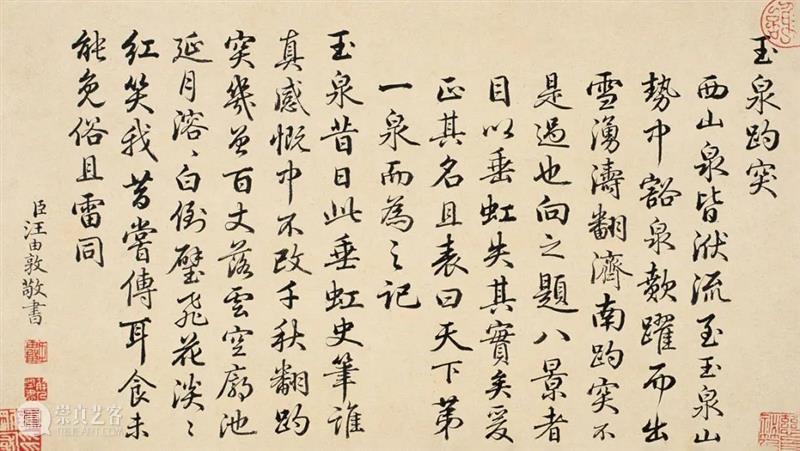 玉泉趵突
西山泉皆洑流至玉泉山
勢中豁泉歕躍而出
雪湧濤翻濟南趵突不
是過也向之題八景者
目以垂虹失其實矣爰
正其名且表曰天下第
一泉而為之記
玉泉昔日此垂虹史筆誰
真感慨中不改千秋翻趵
突幾曾百丈落雲空廓池
延月溶〻白倒壁飛花淡〻
紅笑我昔嘗傳耳食未
能免俗且雷同
臣汪由敦敬書
崇真艺客